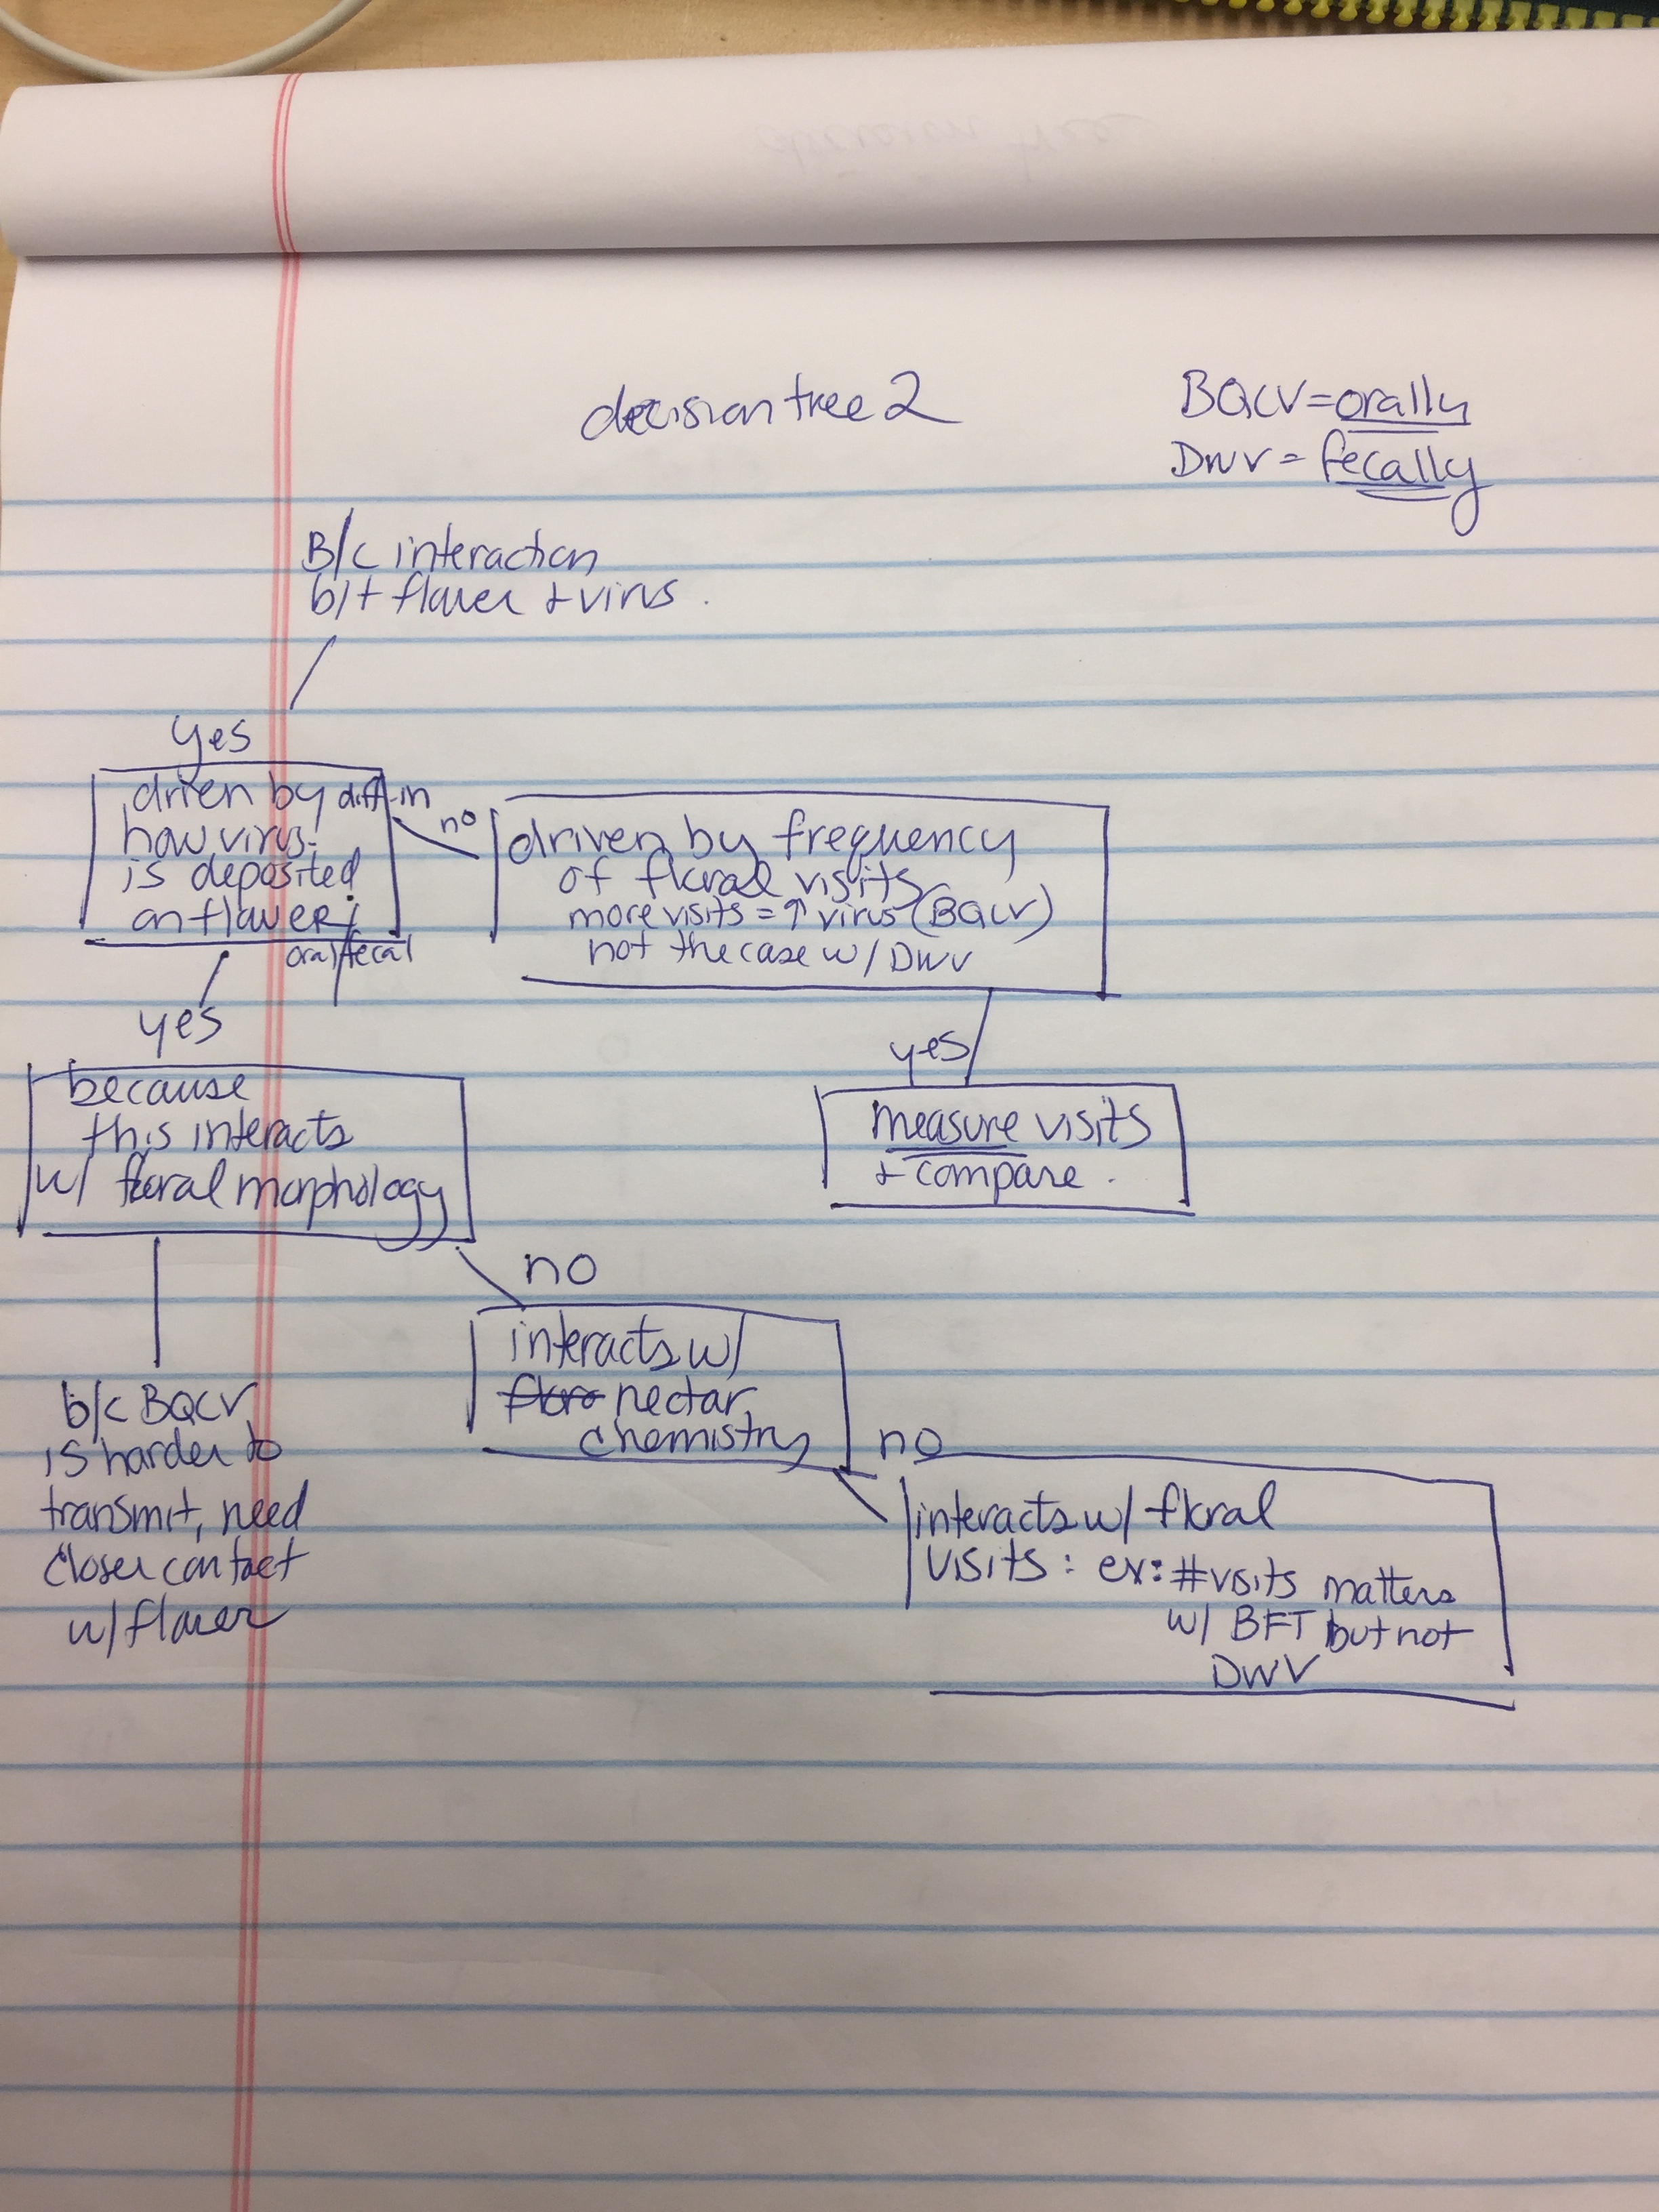 decision tree 2
BQCV = orally
DWV = fecally
B/c interaction
b/t flower + virus.
yes
driven by diff in
how virus
is deposited
on flower
oral/fecal
no
driven by frequency
of floral visits
more visits = ↑ virus (BQCV)
not the case w/ DWV
yes
because
this interacts
w/ floral morphology
yes
measure visits
+ compare.
no
b/c BQCV
is harder to
transmit, need
closer contact
w/ flower
interacts w/
floro nectar
chemistry
no
interacts w/ floral
visits: ex: #visits matters
w/ BFT but not
DWV